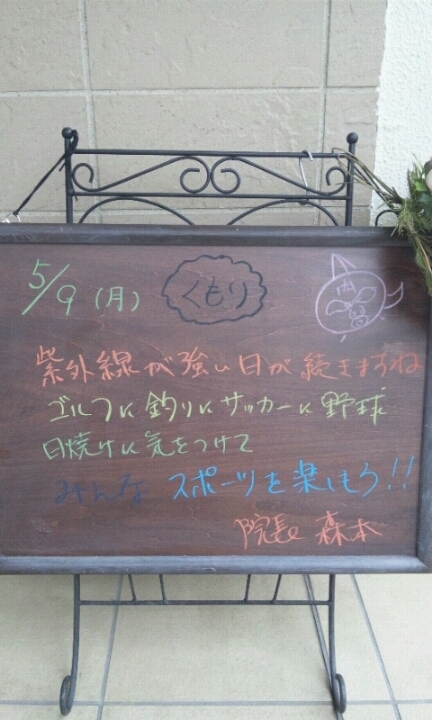 5/9(月) くもり
紫外線が強い日が続きますね
ゴルフに釣りにサッカーに野球
日焼けに気をつけて
みんな スポーツを楽しもう!!
院長 森本